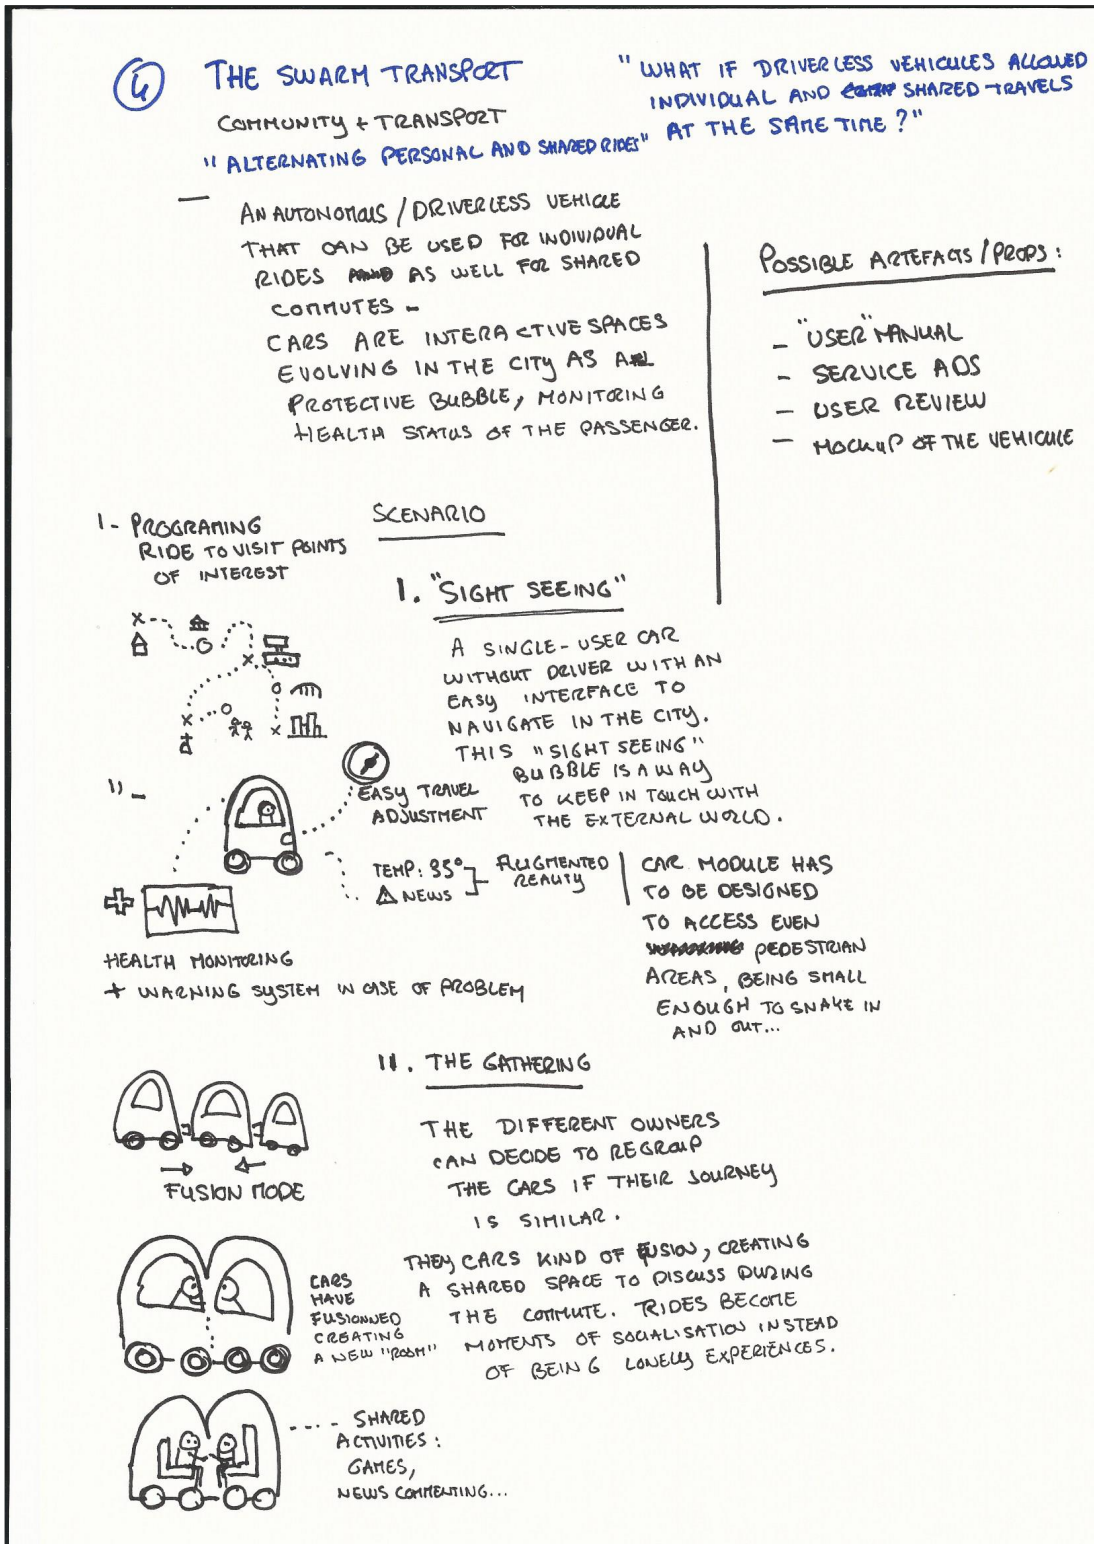 4
THE SWARM TRANSPORT
COMMUNITY + TRANSPORT
"ALTERNATING PERSONAL AND SHARED RIDES"
"WHAT IF DRIVERLESS VEHICULES ALLOWED
INDIVIDUAL AND SHARED TRAVELS
AT THE SAME TIME?"
— AN AUTONOMOUS / DRIVERLESS VEHICLE
THAT CAN BE USED FOR INDIVIDUAL
RIDES AS WELL FOR SHARED
COMMUTES -
CARS ARE INTERACTIVE SPACES
EVOLVING IN THE CITY AS A
PROTECTIVE BUBBLE, MONITORING
HEALTH STATUS OF THE PASSENGER.
POSSIBLE ARTEFACTS / PROPS :
- "USER" MANUAL
- SERVICE ADS
- USER REVIEW
- MOCKUP OF THE VEHICULE
SCENARIO
I - PROGRAMING
RIDE TO VISIT POINTS
OF INTEREST
I. "SIGHT SEEING"
A SINGLE-USER CAR
WITHOUT DRIVER WITH AN
EASY INTERFACE TO
NAVIGATE IN THE CITY.
THIS "SIGHT SEEING"
BUBBLE IS A WAY
TO KEEP IN TOUCH WITH
THE EXTERNAL WORLD.
II -
EASY TRAVEL
ADJUSTMENT
TEMP: 35°
NEWS
AUGMENTED
REALITY
CAR MODULE HAS
TO BE DESIGNED
TO ACCESS EVEN
PEDESTRIAN
AREAS, BEING SMALL
ENOUGH TO SNAKE IN
AND OUT...
HEALTH MONITORING
+ WARNING SYSTEM IN CASE OF PROBLEM
II. THE GATHERING
THE DIFFERENT OWNERS
CAN DECIDE TO REGROUP
THE CARS IF THEIR JOURNEY
IS SIMILAR.
THEY CARS KIND OF FUSION, CREATING
A SHARED SPACE TO DISCUSS DURING
THE COMMUTE. RIDES BECOME
MOMENTS OF SOCIALISATION INSTEAD
OF BEING LONELY EXPERIENCES.
FUSION MODE
CARS
HAVE
FUSIONNED
CREATING
A NEW "ROOM"
---- SHARED
ACTIVITIES :
GAMES,
NEWS COMMENTING...